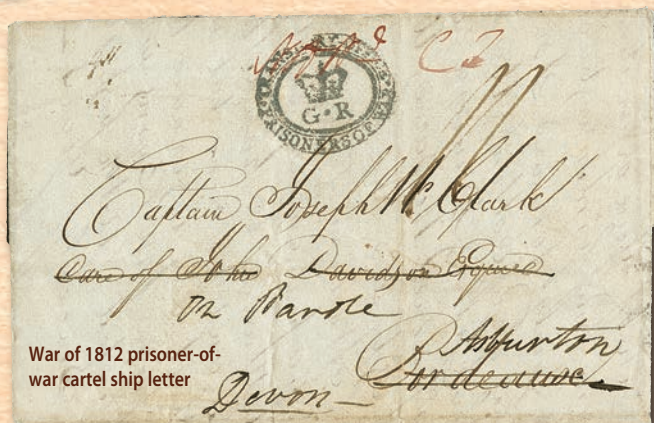 TRANSPORT OFFICE
PRISONERS OF WAR
G·R
Captain Joseph W. Clark
Care of John Davidson Esquire
on Parole
Ashburton
Bordeaux
Devon
War of 1812 prisoner-of-
war cartel ship letter